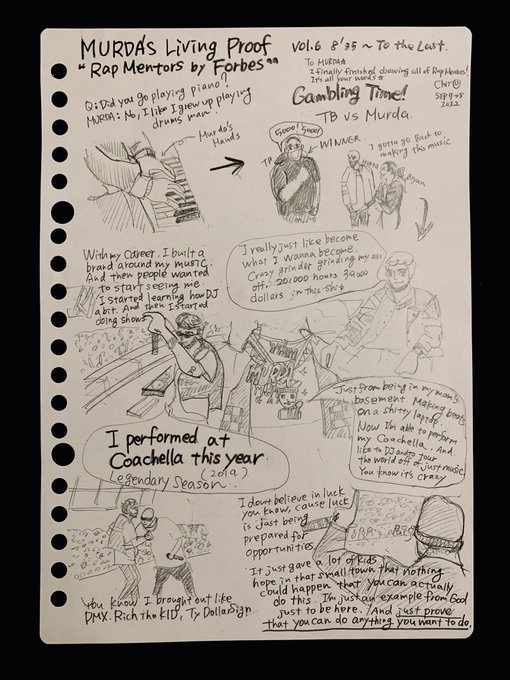 MURDA's Living Proof
"Rap Mentors by Forbes"
Vol.6 8'35 ~ To the Last.
To MURDA★
I finally finished drawing all of Rap Mentors!
It's all your words★
SEP 9
2022
Gambling Time!
TB vs Murda.
Q: Did you go playing piano?
MURDA: No, I like I grew up playing
drums man.
Murda's
Hands
5000! 5000!
WINNER
I gotta go back to
making this music
With my Career, I built a
brand around my music.
And then people wanted
to start seeing me.
I started learning how DJ
a bit. And then I started
doing shows
I really just like become
what I wanna become.
Crazy grinder grinding my ass
off.
dollars in this shit
Just from being in my mom's
basement Making beats
on a shitty laptop.
Now I'm able to perform
my Coachella. And
like to DJ and to tour
the world off of just music
You know it's crazy
I performed at
Coachella this year.
(2019)
Legendary Season.
I don't believe in luck
you know, cause luck
is just being
prepared for
opportunities
It just gave a lot of kids
hope in that small town that nothing
could happen that you can actually
do this. I'm just an example from God
just to be here. And just prove
that you can do anything you want to do.
You know I brought out like
DMX. Rich the KID, Ty Dolla Sign